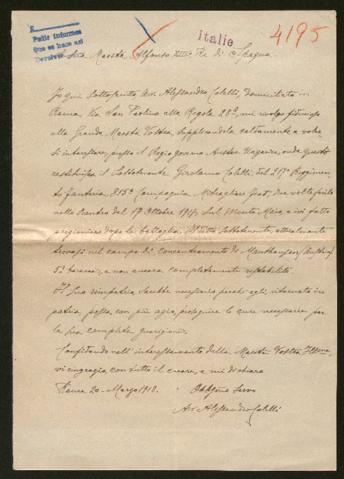 Pedir informes
que se hace así
Devolver
Italie
4195
A Sua Maestà Alfonso XIII Re di Spagna.
Io qui sottoscritto Avv. Alessandro Calilli, domiciliato in
Roma, Via San Paolino alla Regola 28, mi rivolgo fiducioso
alla Grande Maestà Vostra, supplicandola caldamente a volersi
interessare, presso il Regio governo Austro Ungarico, onde questo
restituisca il Sottotenente Girolamo Calilli del 217° Reggimento
fanteria, 815ª Compagnia Mitragliatrici Fiat, due volte ferito
nello scontro del 17 Ottobre 1917, sul Monte e ivi fatto
prigioniero dopo la battaglia. Sottotenente, attualmente
trovasi nel campo di Concentramento di Mauthausen (Austria)
5ª baracca, e non ancora completamente ristabilito.
Il suo rimpatrio sarebbe necessario perchè egli, ritornato in
patria, possa con più agio, proseguire le cure necessarie per
la sua completa guarigione.
Confidando nell' interessamento della Maestà Vostra
vi ringrazio con tutto il cuore, e mi dichiaro
Roma 20 Marzo 1918. Obblgmo Servo
Avv. Alessandro Calilli